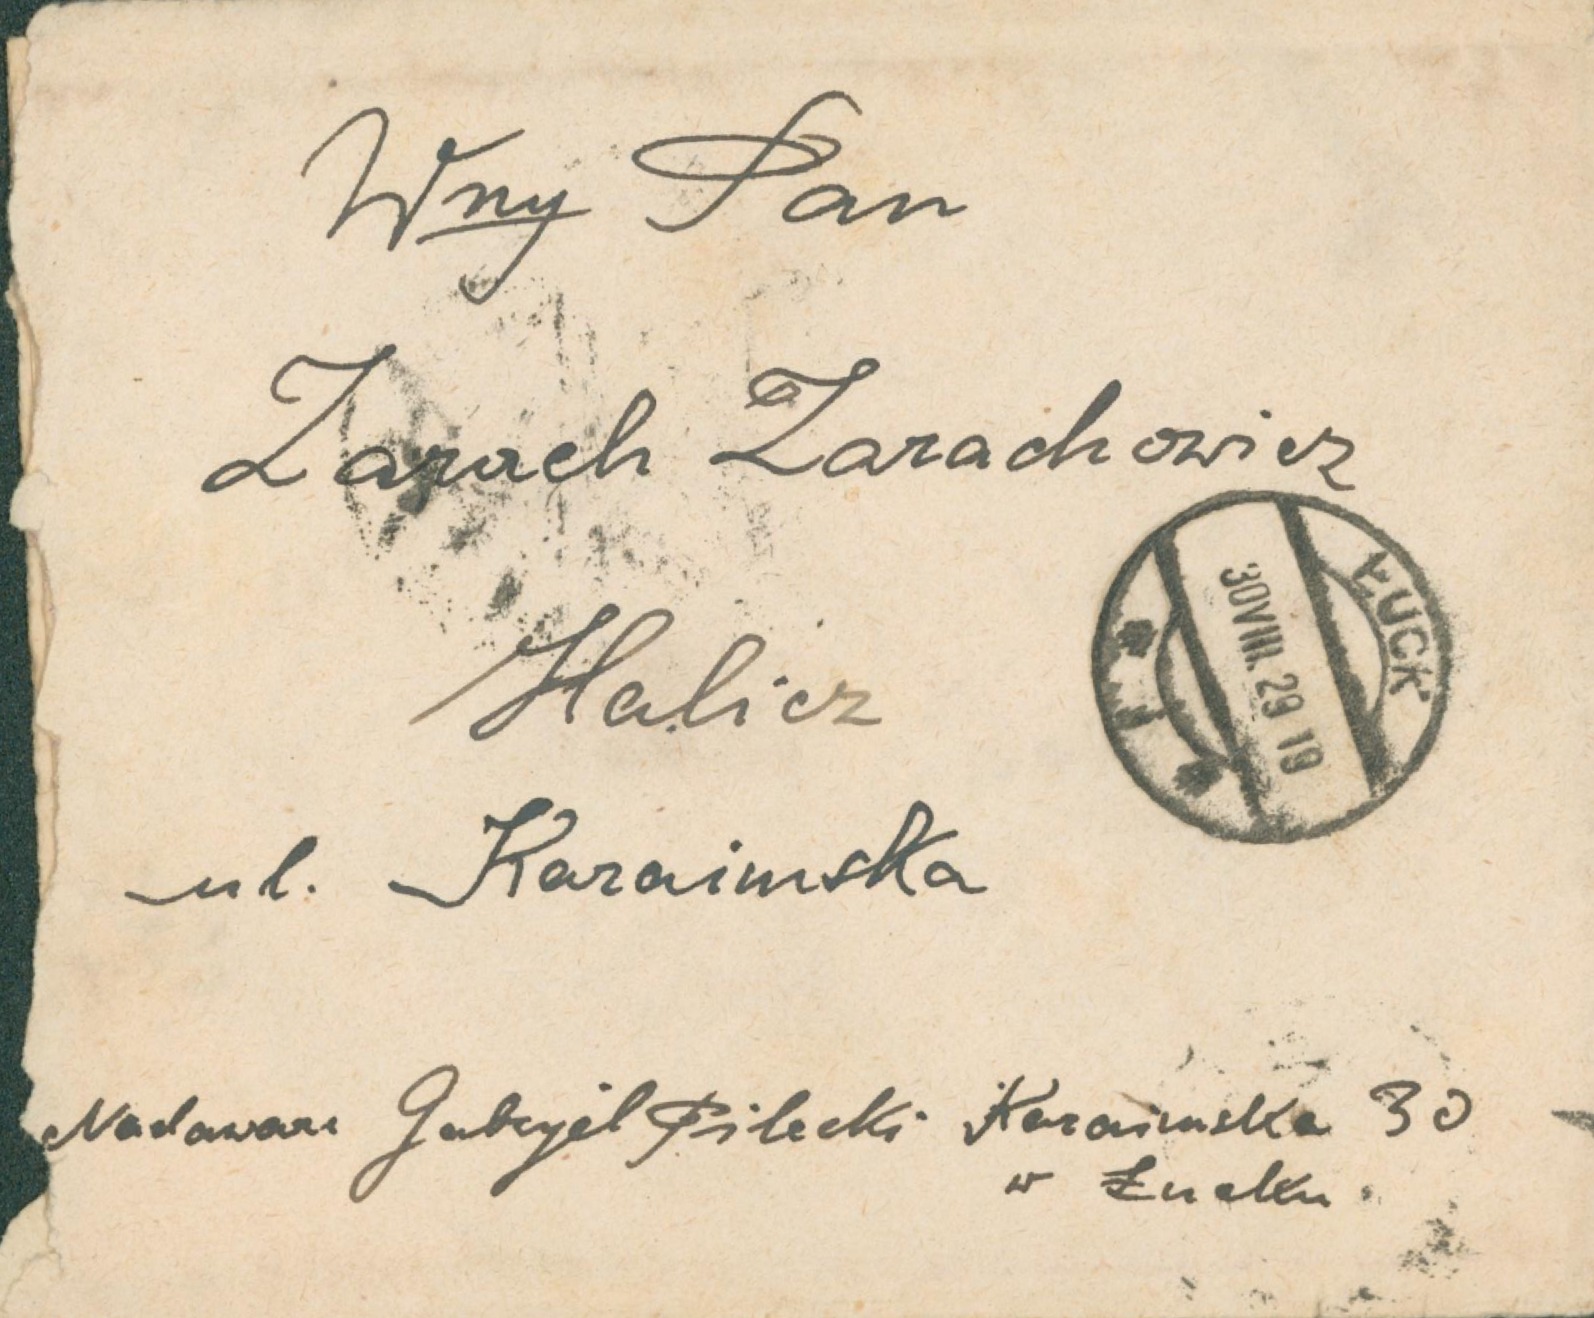 Wny Pan
Zarach Zarachowicz
Halicz
ul. Karaimska
ŁUCK
30 VIII. 29 19
Nadawca Gabryel Pilecki Karaimska 30
w Łucku.